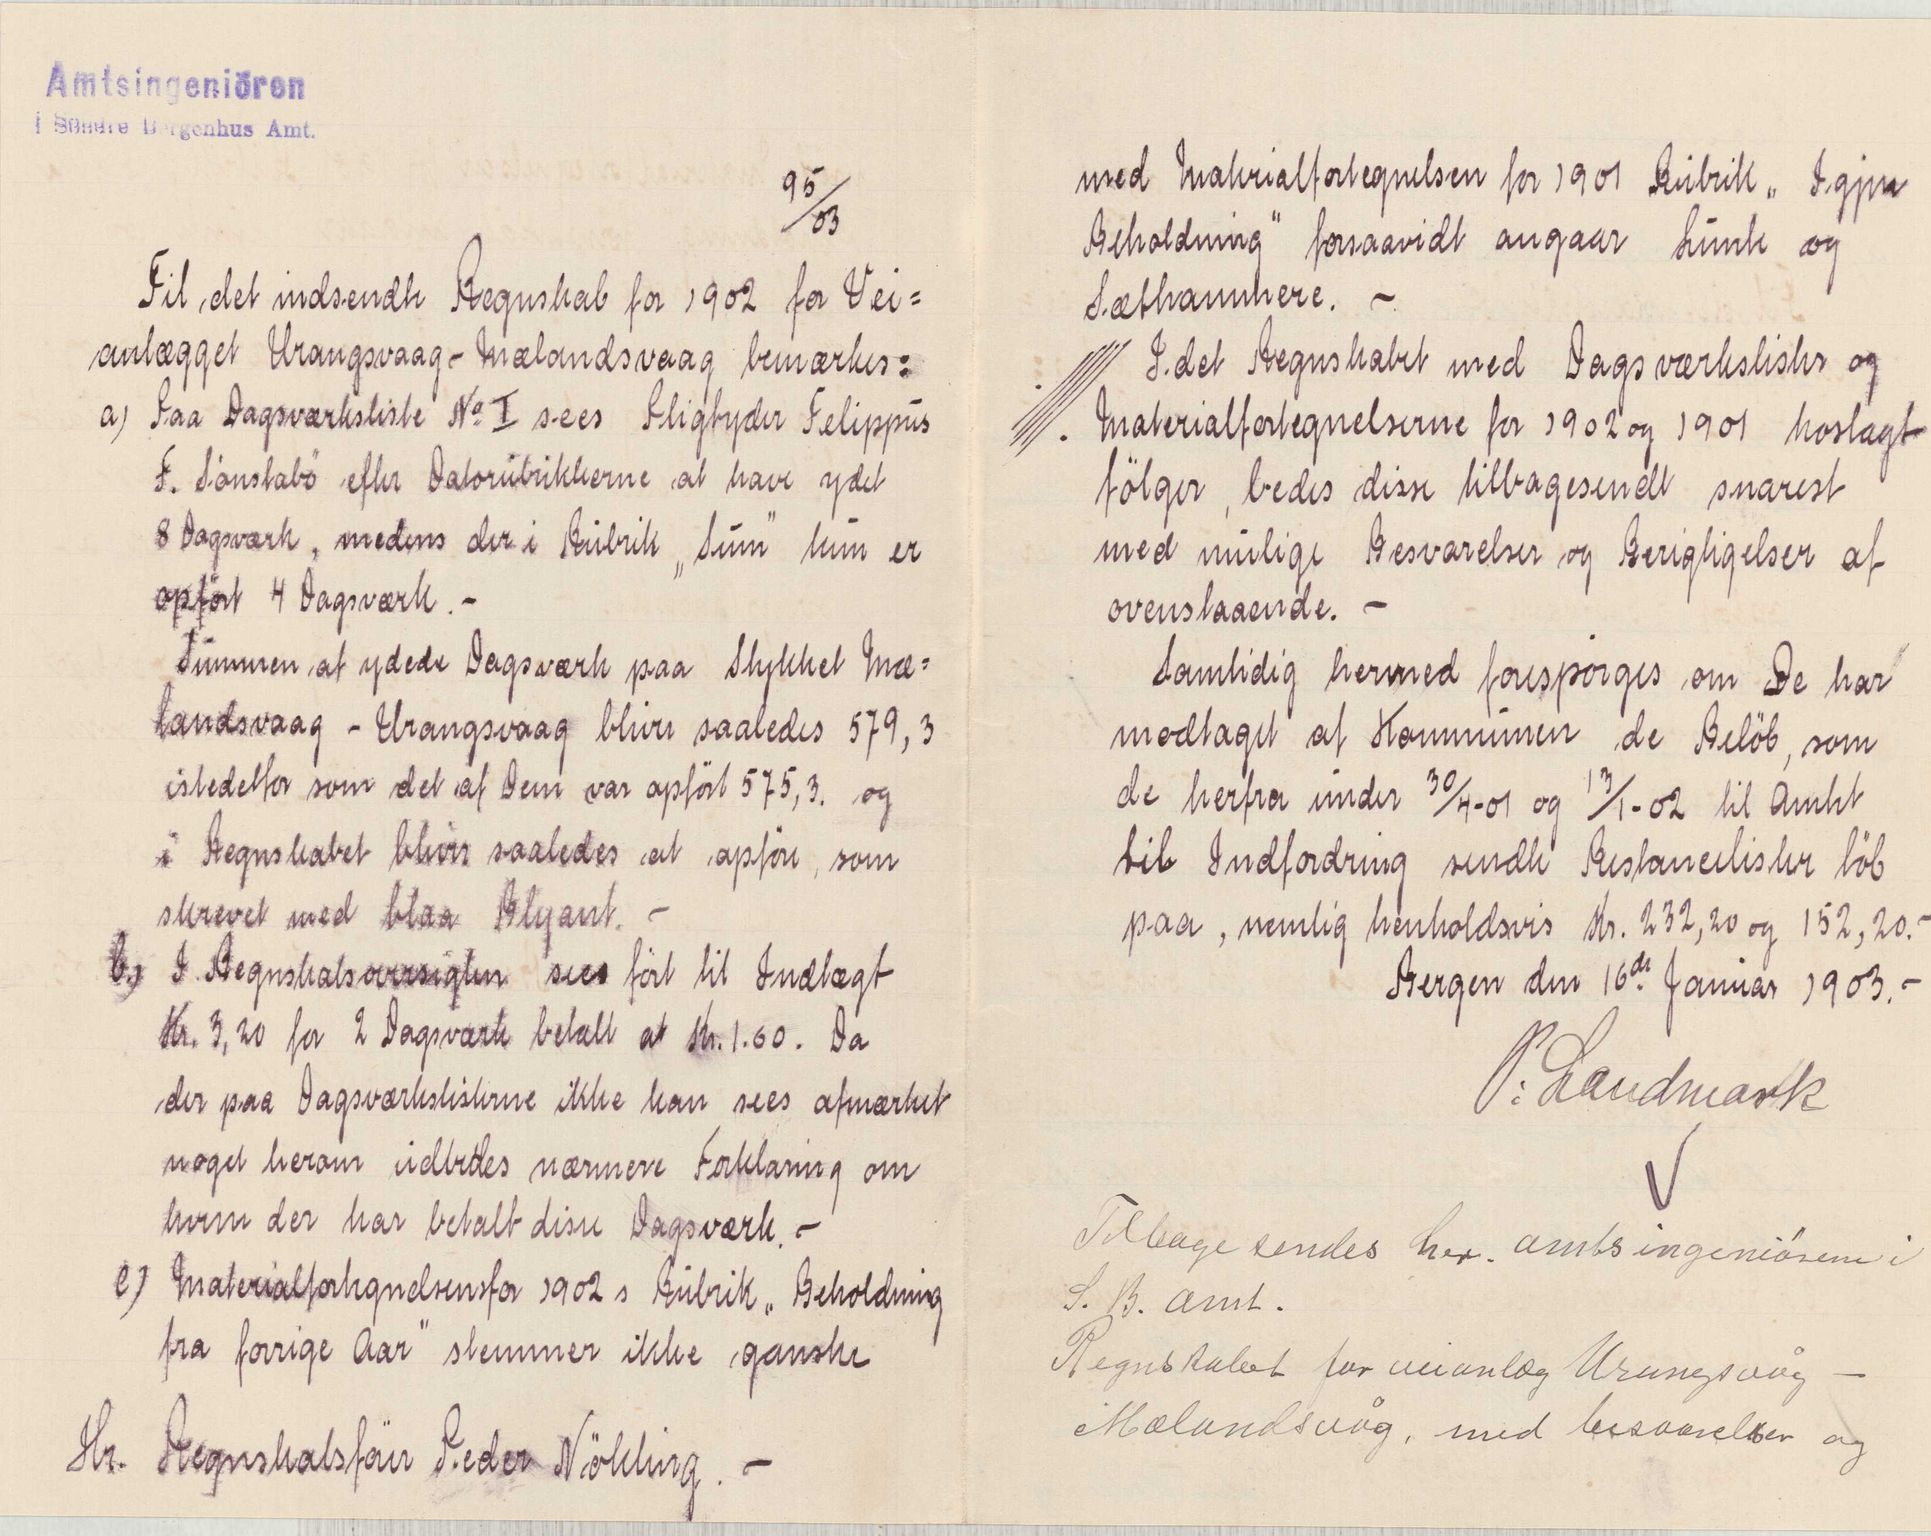 Amtsingeniören
i Söndre Bergenhus Amt.
95/03
Til det indsendte Regnskab for 1902 for Vei=
anlægget Urangsvaag - Mælandsvaag bemærkes:
a) Paa Dagsværksliste No I sees Pligtyder Felippus
F. Sönstabö efter Datorubrikkerne at have ydet
8 Dagsværk, medens der i Rubrik „Sum" kun er
opfört 4 Dagsværk. -
Summen af ydede Dagsværk paa Stykket Mæ=
landsvaag - Urangsvaag bliver saaledes 579,3
istedetfor som det af Dem var opfört 575,3. og
i Regnskabet bliver saaledes at opföre, som
skrevet med blaa Blyant. -
b.) I Regnskabsoversigten sees fört til Indtægt
Kr. 3,20 for 2 Dagsværk betalt at Kr. 1.60. Da
der paa Dagsværkslisterne ikke kan sees afmærket
noget herom udbedes nærmere Forklaring om
hvem der har betalt disse Dagsværk. -
c) Materialfortegnelsens for 1902 s Rubrik „ Beholdning
fra forrige Aar" stemmer ikke ganske
Hr. Regnskabsförer Peder Nökling. -
med Materialfortegnelsen for 1901 Rubrik „ Igjen
Beholdning" forsaavidt angaar Lunte og
Sæthammere. -
I det Regnskabet med Dagsværkslister og
Materialfortegnelserne for 1902 og 1901 hoslagt
fölger, bedes disse tilbagesendt snarest
med mulige Besvarelser og Berigtigelser af
ovenstaaende. -
Samtidig hermed forespörges om De har
modtaget af Kommunen de Belöb, som
de herfra under 30/4-01 og 13/1-02 til Amtet
til Indfordring sendte Restancelister löb
paa, nemlig henholdsvis Kr. 232,20 og 152,20. -
Bergen den 16de Januar 1903. -
P: Landmark
Tilbage sendes her. amtsingeniörene i
S. B. amt.
Regnskabet for veianlæg Urangsvåg -
Mælandsvåg, med besvarelser og